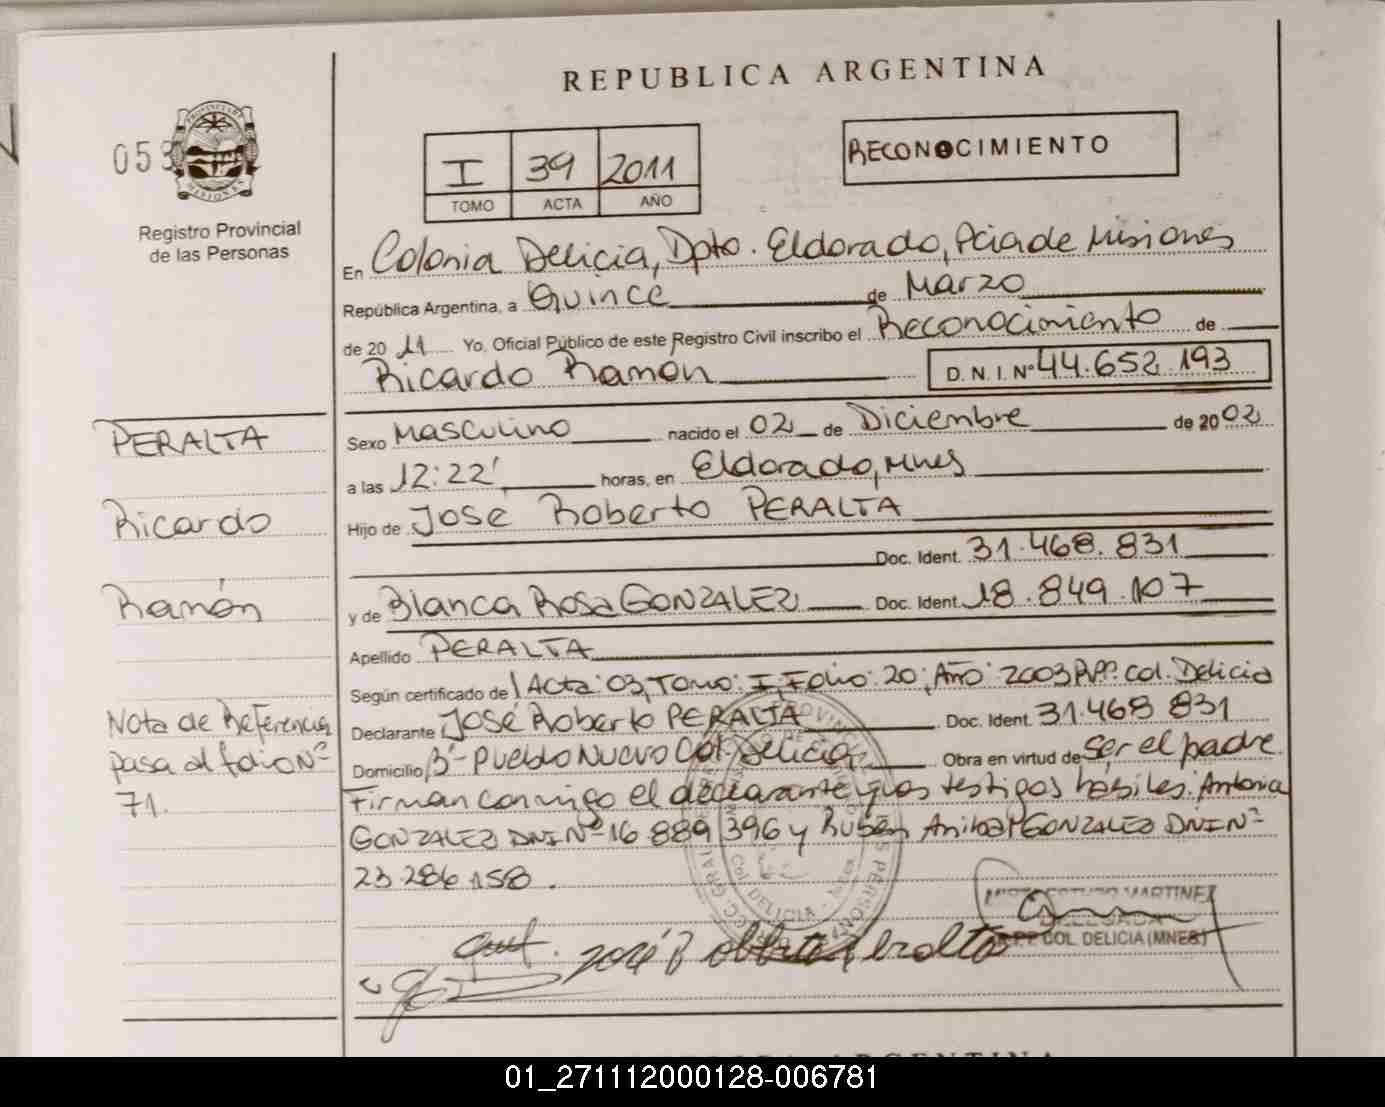 REPUBLICA ARGENTINA
053
PROVINCIA DE MISIONES
Registro Provincial
de las Personas
I 39 2011
TOMO ACTA AÑO
RECONOCIMIENTO
En Colonia Delicia, Dpto. Eldorado, Pcia de Misiones
República Argentina, a Quince de Marzo
de 20 11 Yo, Oficial Público de este Registro Civil inscribo el Reconocimiento de
Ricardo Ramon D. N. I. Nº 44.652.193
PERALTA
Ricardo
Ramón
Sexo Masculino nacido el 02 de Diciembre de 20 02
a las 12:22' horas, en Eldorado, Mnes
Hijo de Jose Roberto PERALTA
Doc. Ident. 31.468.831
y de Blanca Rosa GONZALEZ Doc. Ident. 18.849.107
Apellido PERALTA
Según certificado de Acta: 03, Tomo: I, Folio: 20, Año: 2003 Col. Delicia
Declarante José Roberto PERALTA Doc. Ident. 31.468 831
Domicilio Bº Pueblo Nuevo Col. Delicia Obra en virtud de Ser el padre.
Firman conmigo el declarante y los testigos habiles: Antonia
GONZALEZ DNI Nº 16.889 396 y Rubén Anibal GONZALEZ DNI Nº
23 286 158.
Nota de Referencia
pasa al folio Nº
71.
COL. DELICIA - Mnes
José Roberto Peralta
MARTINEZ
DELEGADA
COL. DELICIA (MNES)
REPUBLICA ARGENTINA
01_271112000128-006781